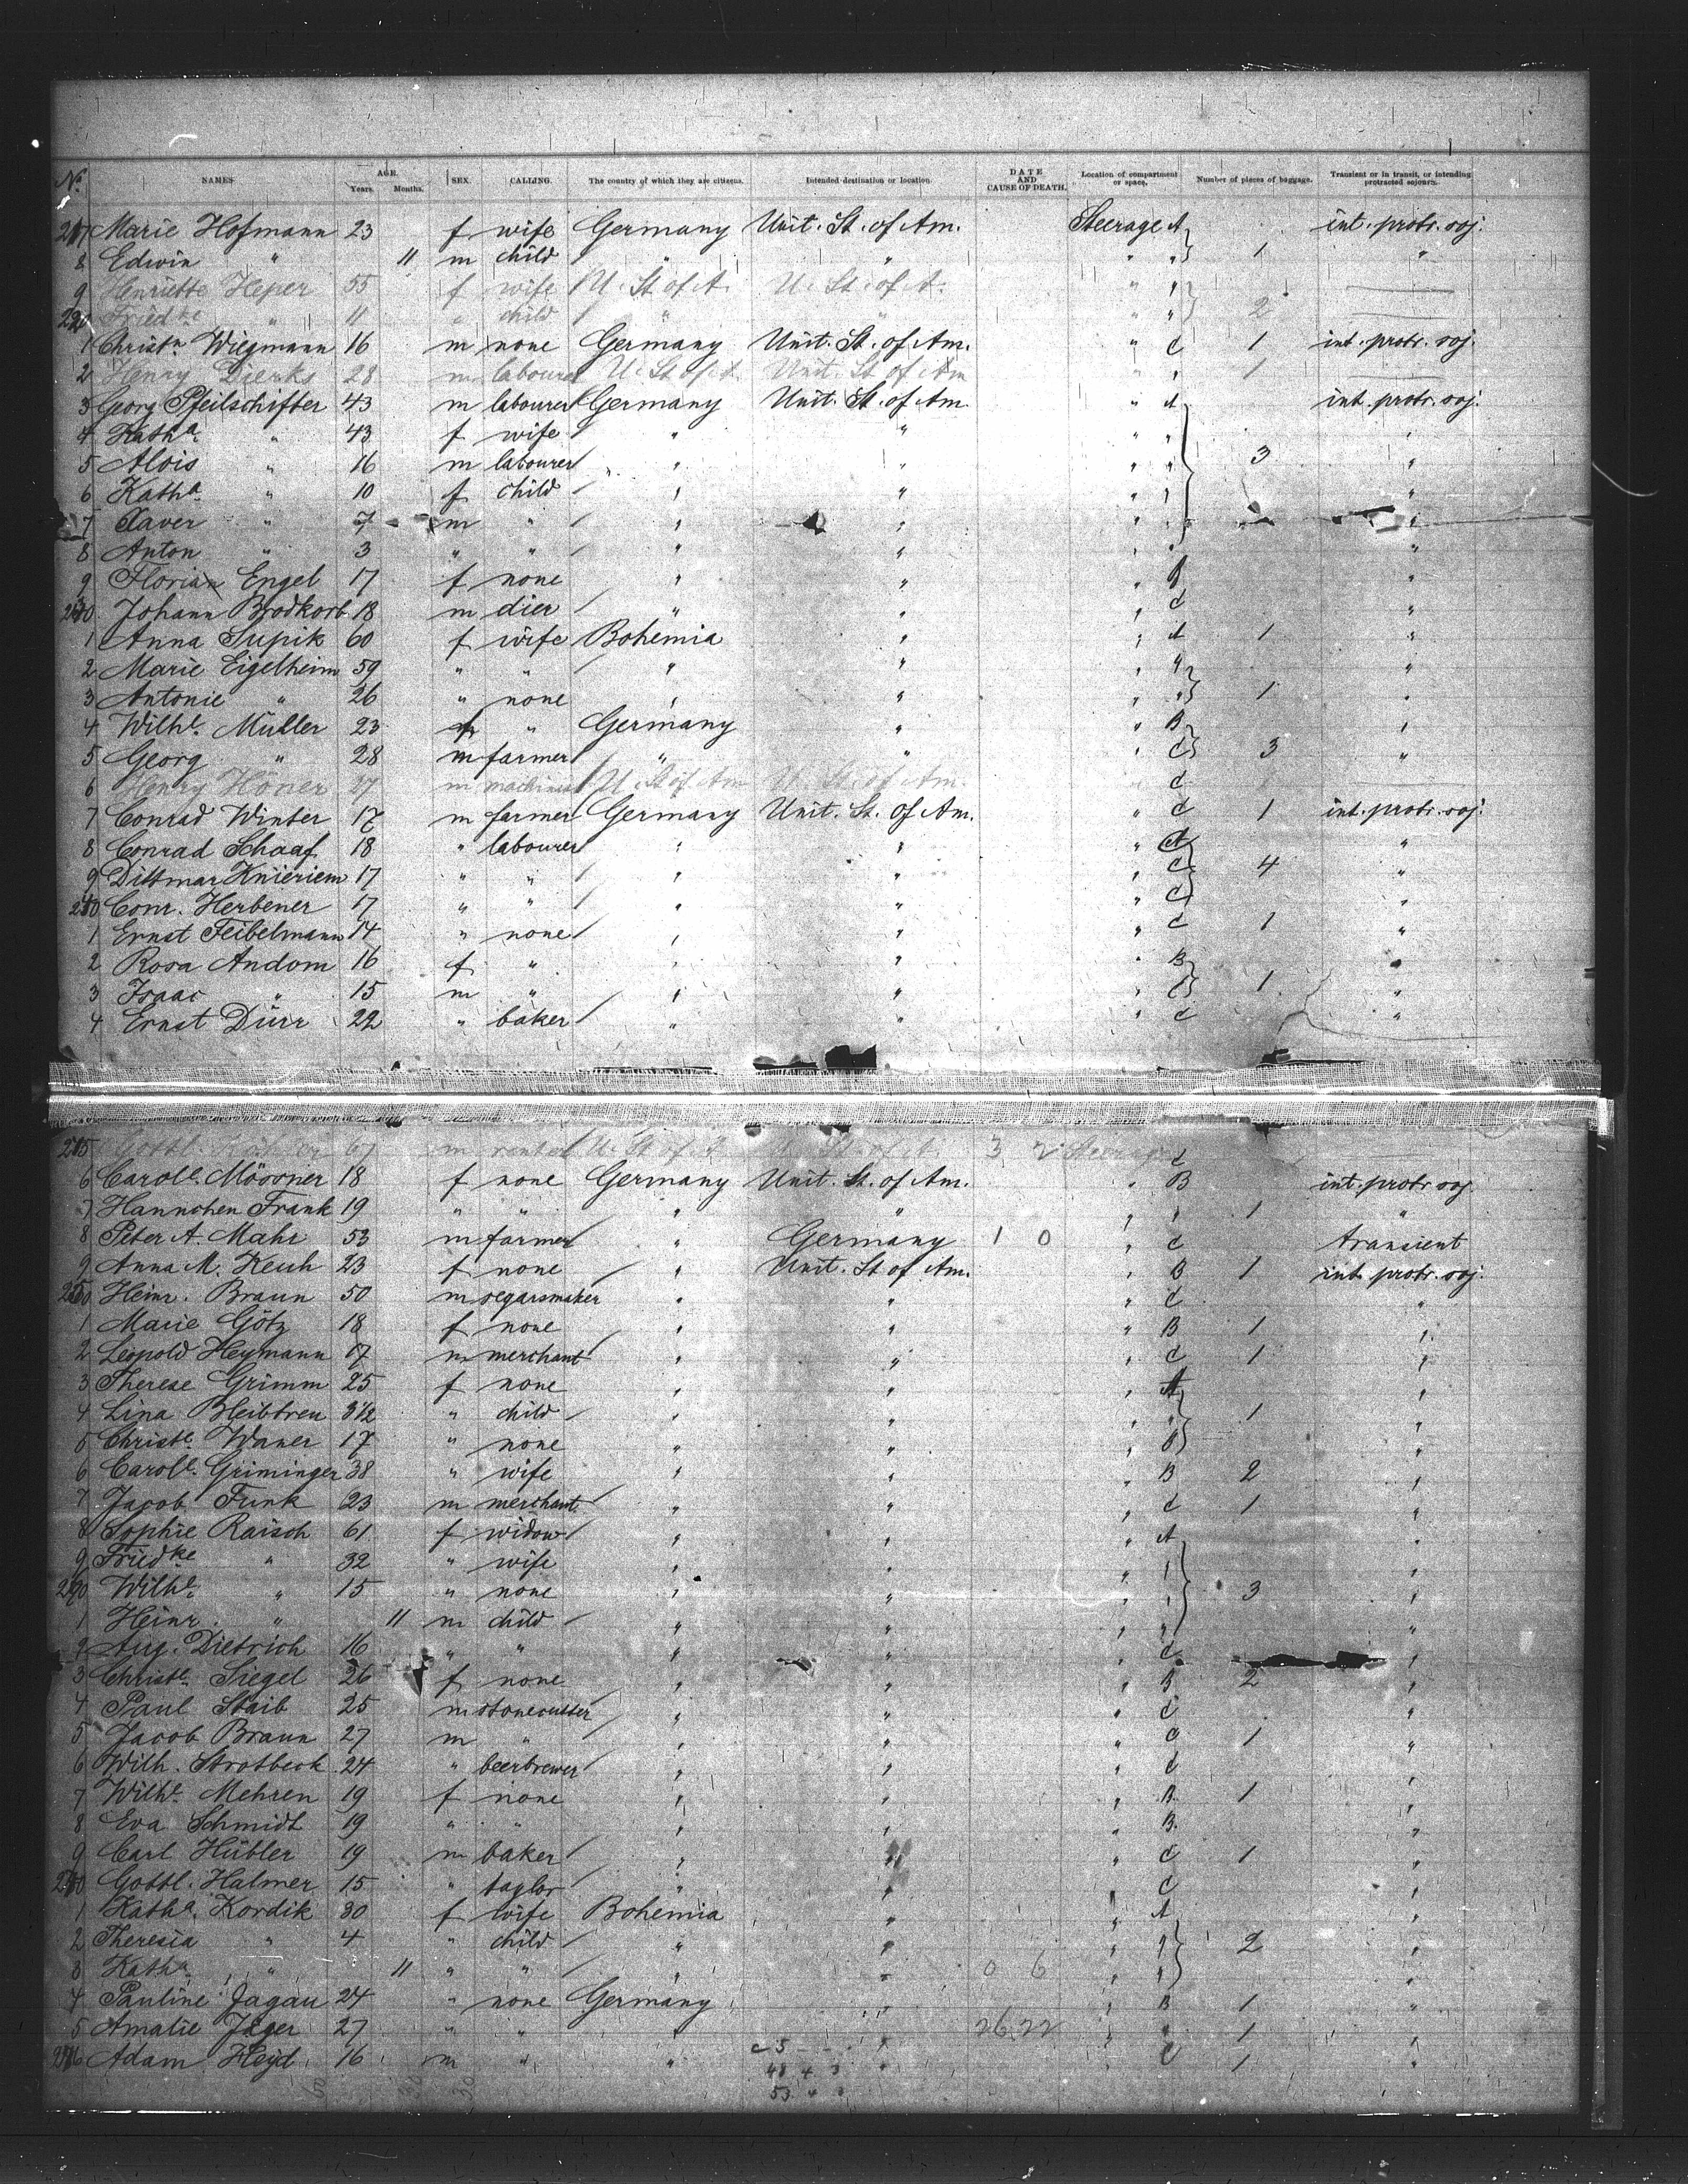 No. NAMES AGE. Years. Months. SEX. CALLING. The country of which they are citizens. Intended destination or location. DATE AND CAUSE OF DEATH. Location of compartment or space. Number of pieces of baggage. Transient or in transit, or intending protracted sojourn.
217 Marie Hofmann 23 f wife Germany Unit. St. of Am. Steerage A int. protr. soj.
8 Edwin " 11 m child " " " " 1 "
9 Henriette Heper 55 f wife U. St. of A. U. St. of A. " "
220 Friedke " 11 " child " " " " 2
1 Christn. Wiegmann 16 m none Germany Unit. St. of Am. " C 1 int. protr. soj.
2 Henry Dierks 28 m labourer U. St. of A. Unit. St. of Am " " 1
3 Georg Pfeilschifter 43 m labourer Germany Unit. St. of Am. " A int. protr. soj.
4 Katha. " 43 f wife " " " " "
5 Alois " 16 m labourer " " " " 3 "
6 Katha. " 10 f child " " " " "
7 Xaver " 7 m " " " " "
8 Anton " 3 " " " " " " "
9 Florian Engel 17 f none " " " B "
230 Johann Brodkorb 18 m dier " " " C "
1 Anna Supik 60 f wife Bohemia " " A 1 "
2 Marie Eigelheim 59 " " " " " " "
3 Antonie " 26 " none " " " " 1 "
4 Wilhe. Müller 23 f " Germany " " B "
5 Georg " 28 m farmer " " " C 3 "
6 Henry Höner 27 m machinist U. St. of Am U. St. of Am. " C
7 Conrad Winter 17 m farmer Germany Unit. St. of Am. " C 1 int. protr. soj.
8 Conrad Schaaf 18 " labourer " " " "
9 Dittmar Knieriem 17 " " " " " C 4 "
240 Conr. Herbener 17 " " " " " C "
1 Ernst Feibelmann 14 " none " " " C 1 "
2 Rosa Andom 16 f " " " " B "
3 Isaac " 15 m " " " " C 1 "
4 Ernst Dürr 22 " baker " " " C "
245 67 m renter U. St. of A. U. St. of A. 3 2 Steerage C
6 Carole. Mössner 18 f none Germany Unit. St. of Am. " B int. protr. soj.
7 Hannchen Frank 19 " " " " " " 1 "
8 Peter A. Mahr 53 m farmer " Germany 1 0 " C transient
9 Anna M. Keuh 23 f none " Unit. St. of Am. " B 1 int. protr. soj.
250 Heinr. Braun 50 m segarsmaker " " " C "
1 Marie Götz 18 f none " " " B 1 "
2 Leopold Heymann 17 m merchant " " " C 1 "
3 Therese Grimm 25 f none " " " A "
4 Lina Bleibtreu 3 1/2 " child " " " " 1 "
5 Christe. Waner 17 " none " " " "
6 Carole. Griminger 38 " wife " " " B 2 "
7 Jacob Funk 23 m merchant " " " C 1 "
8 Sophie Raisch 61 f widow " " " A "
9 Friedke " 32 " wife " " " " "
260 Wilhe. " 15 " none " " " " 3 "
1 Heinr. " 11 m child " " " " "
2 Aug. Dietrich 16 " " " " " C "
3 Christe. Siegel 26 f none " " " B 2 "
4 Paul Staib 25 m stonecutter " " " C "
5 Jacob Braun 27 m " " " " C 1 "
6 Wilh. Strotbeck 24 " beerbrewer " " " C "
7 Wilhe. Mehren 19 f none " " " B 1 "
8 Eva Schmidt 19 " " " " " B. "
9 Carl Hübler 19 m baker " " " C 1 "
270 Gottl. Halmer 15 " taylor " " " C "
1 Katha. Kordik 30 f wife Bohemia " " A "
2 Theresia " 4 " child " " " " 2 "
3 Katha. " 11 " " " " 0 6 " " "
4 Pauline Jagau 24 " none Germany " " B 1 "
5 Amalie Jäger 27 " " " " 26.22 " " 1 "
276 Adam Heyd 16 m " " " " C 1 "
48 4 3
53 4